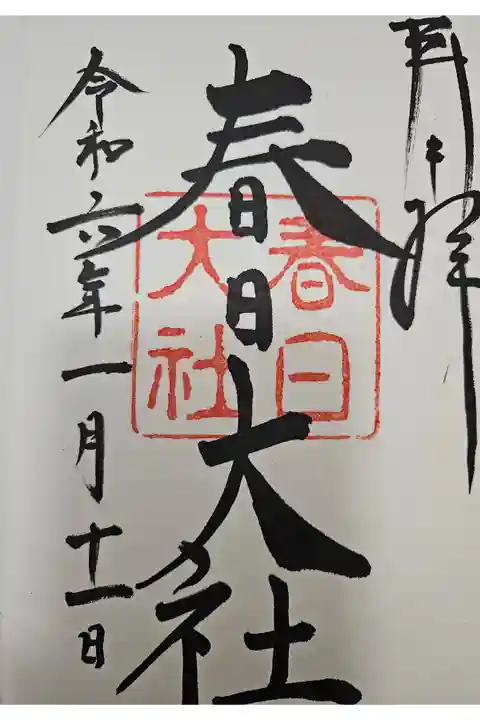 奉拝
春日大社
春日
大社
令和六年一月十一日